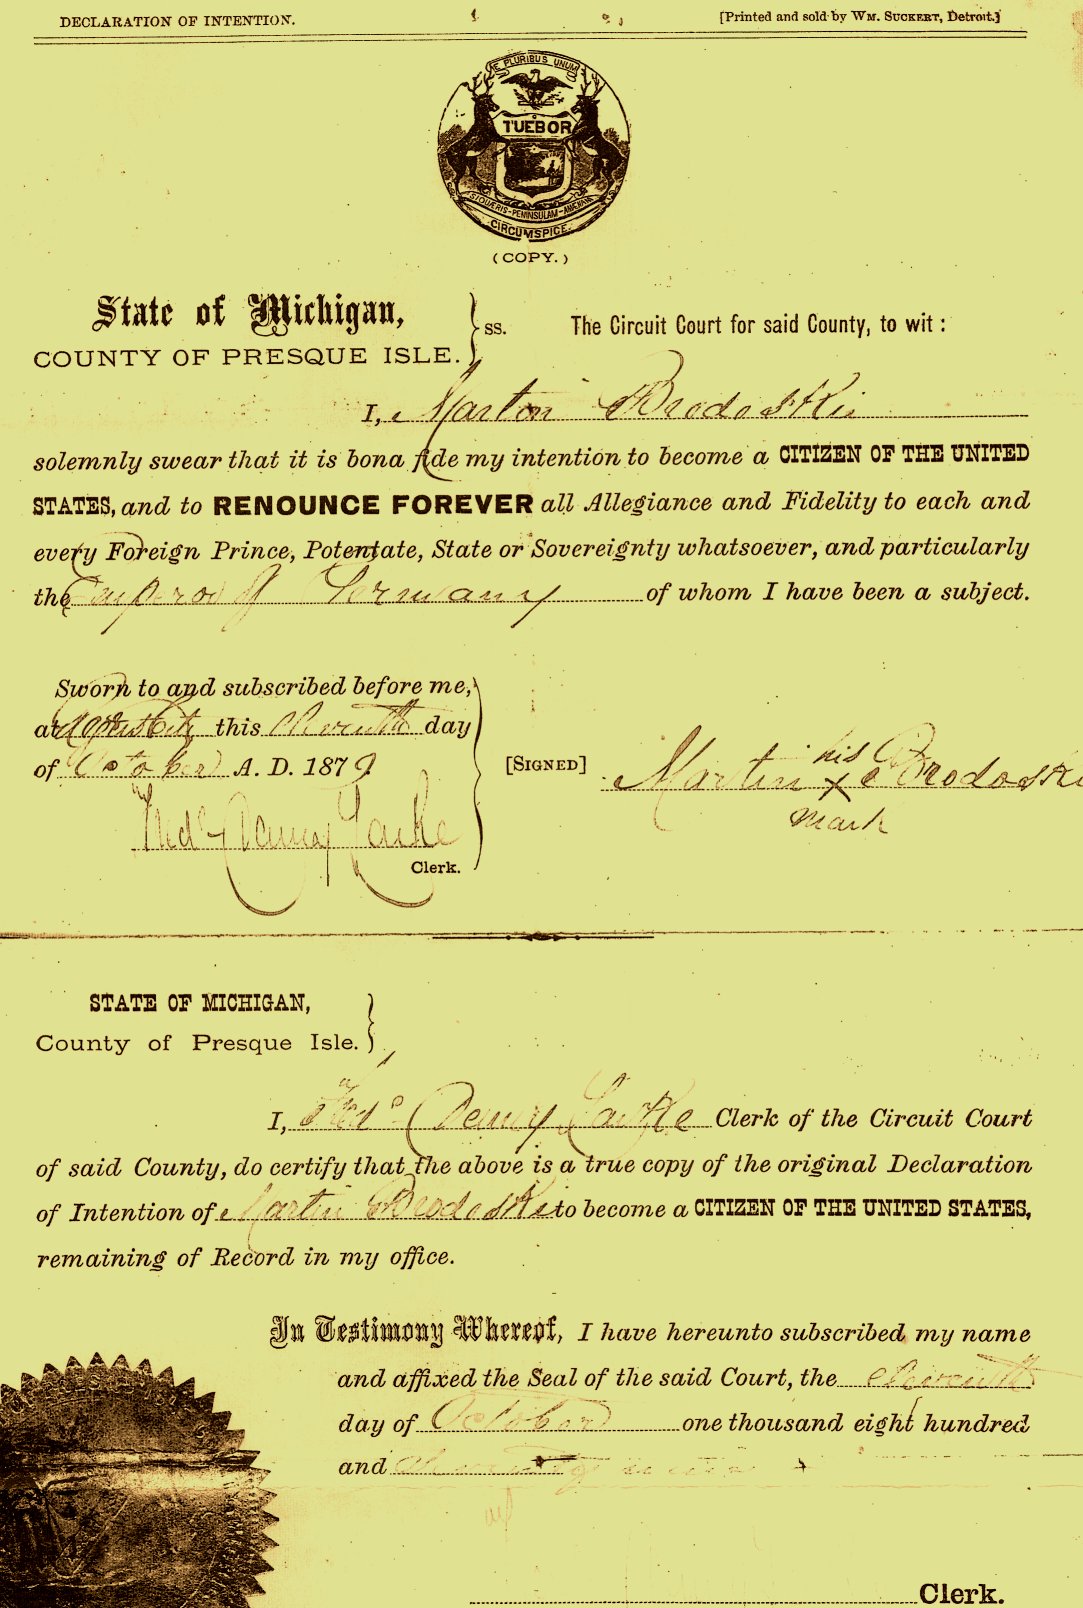 DECLARATION OF INTENTION.
[Printed and sold by WM. SUCKERT, Detroit.]
E PLURIBUS UNUM
TUEBOR
SI QUÆRIS PENINSULAM AMŒNAM
CIRCUMSPICE
(COPY.)
State of Michigan,
COUNTY OF PRESQUE ISLE. } ss. The Circuit Court for said County, to wit:
I, Martin Brodoski
solemnly swear that it is bona fide my intention to become a CITIZEN OF THE UNITED
STATES, and to RENOUNCE FOREVER all Allegiance and Fidelity to each and
every Foreign Prince, Potentate, State or Sovereignty whatsoever, and particularly
the Emperor of Germany of whom I have been a subject.
Sworn to and subscribed before me,
at this eleventh day
of October A. D. 1879
[SIGNED] Martin his x Brodoski
mark
Fredc Denny Larke
Clerk.
STATE OF MICHIGAN,
County of Presque Isle. }
I, Fredc Denny Larke Clerk of the Circuit Court
of said County, do certify that the above is a true copy of the original Declaration
of Intention of Martin Brodoski to become a CITIZEN OF THE UNITED STATES,
remaining of Record in my office.
In Testimony Whereof, I have hereunto subscribed my name
and affixed the Seal of the said Court, the eleventh
day of October one thousand eight hundred
and seventy nine
Clerk.